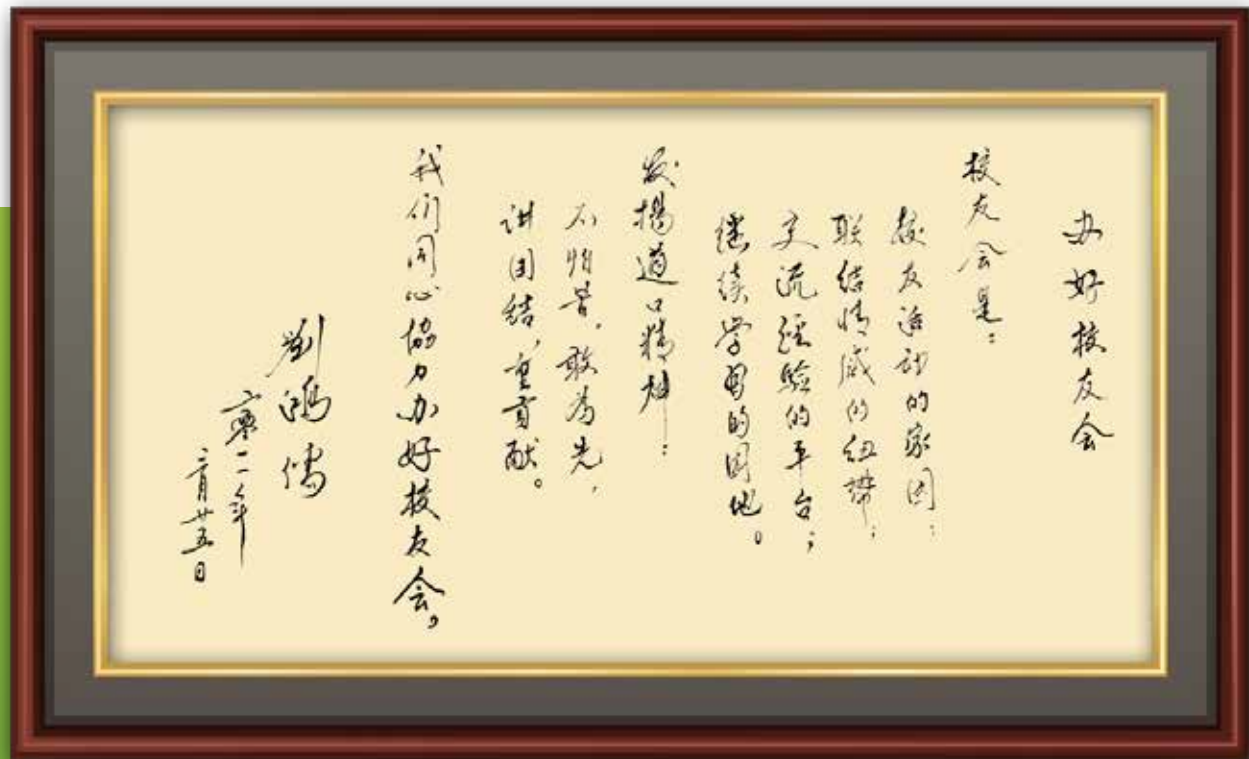 办好校友会
校友会是：
校友活动的家园；
联结情感的纽带；
交流经验的平台；
继续学习的园地。
发揚道口精神：
不怕苦，敢为先，
讲团结，重贡献。
我们同心協力办好校友会。
劉鸿儒
二零一一年
月廿五日